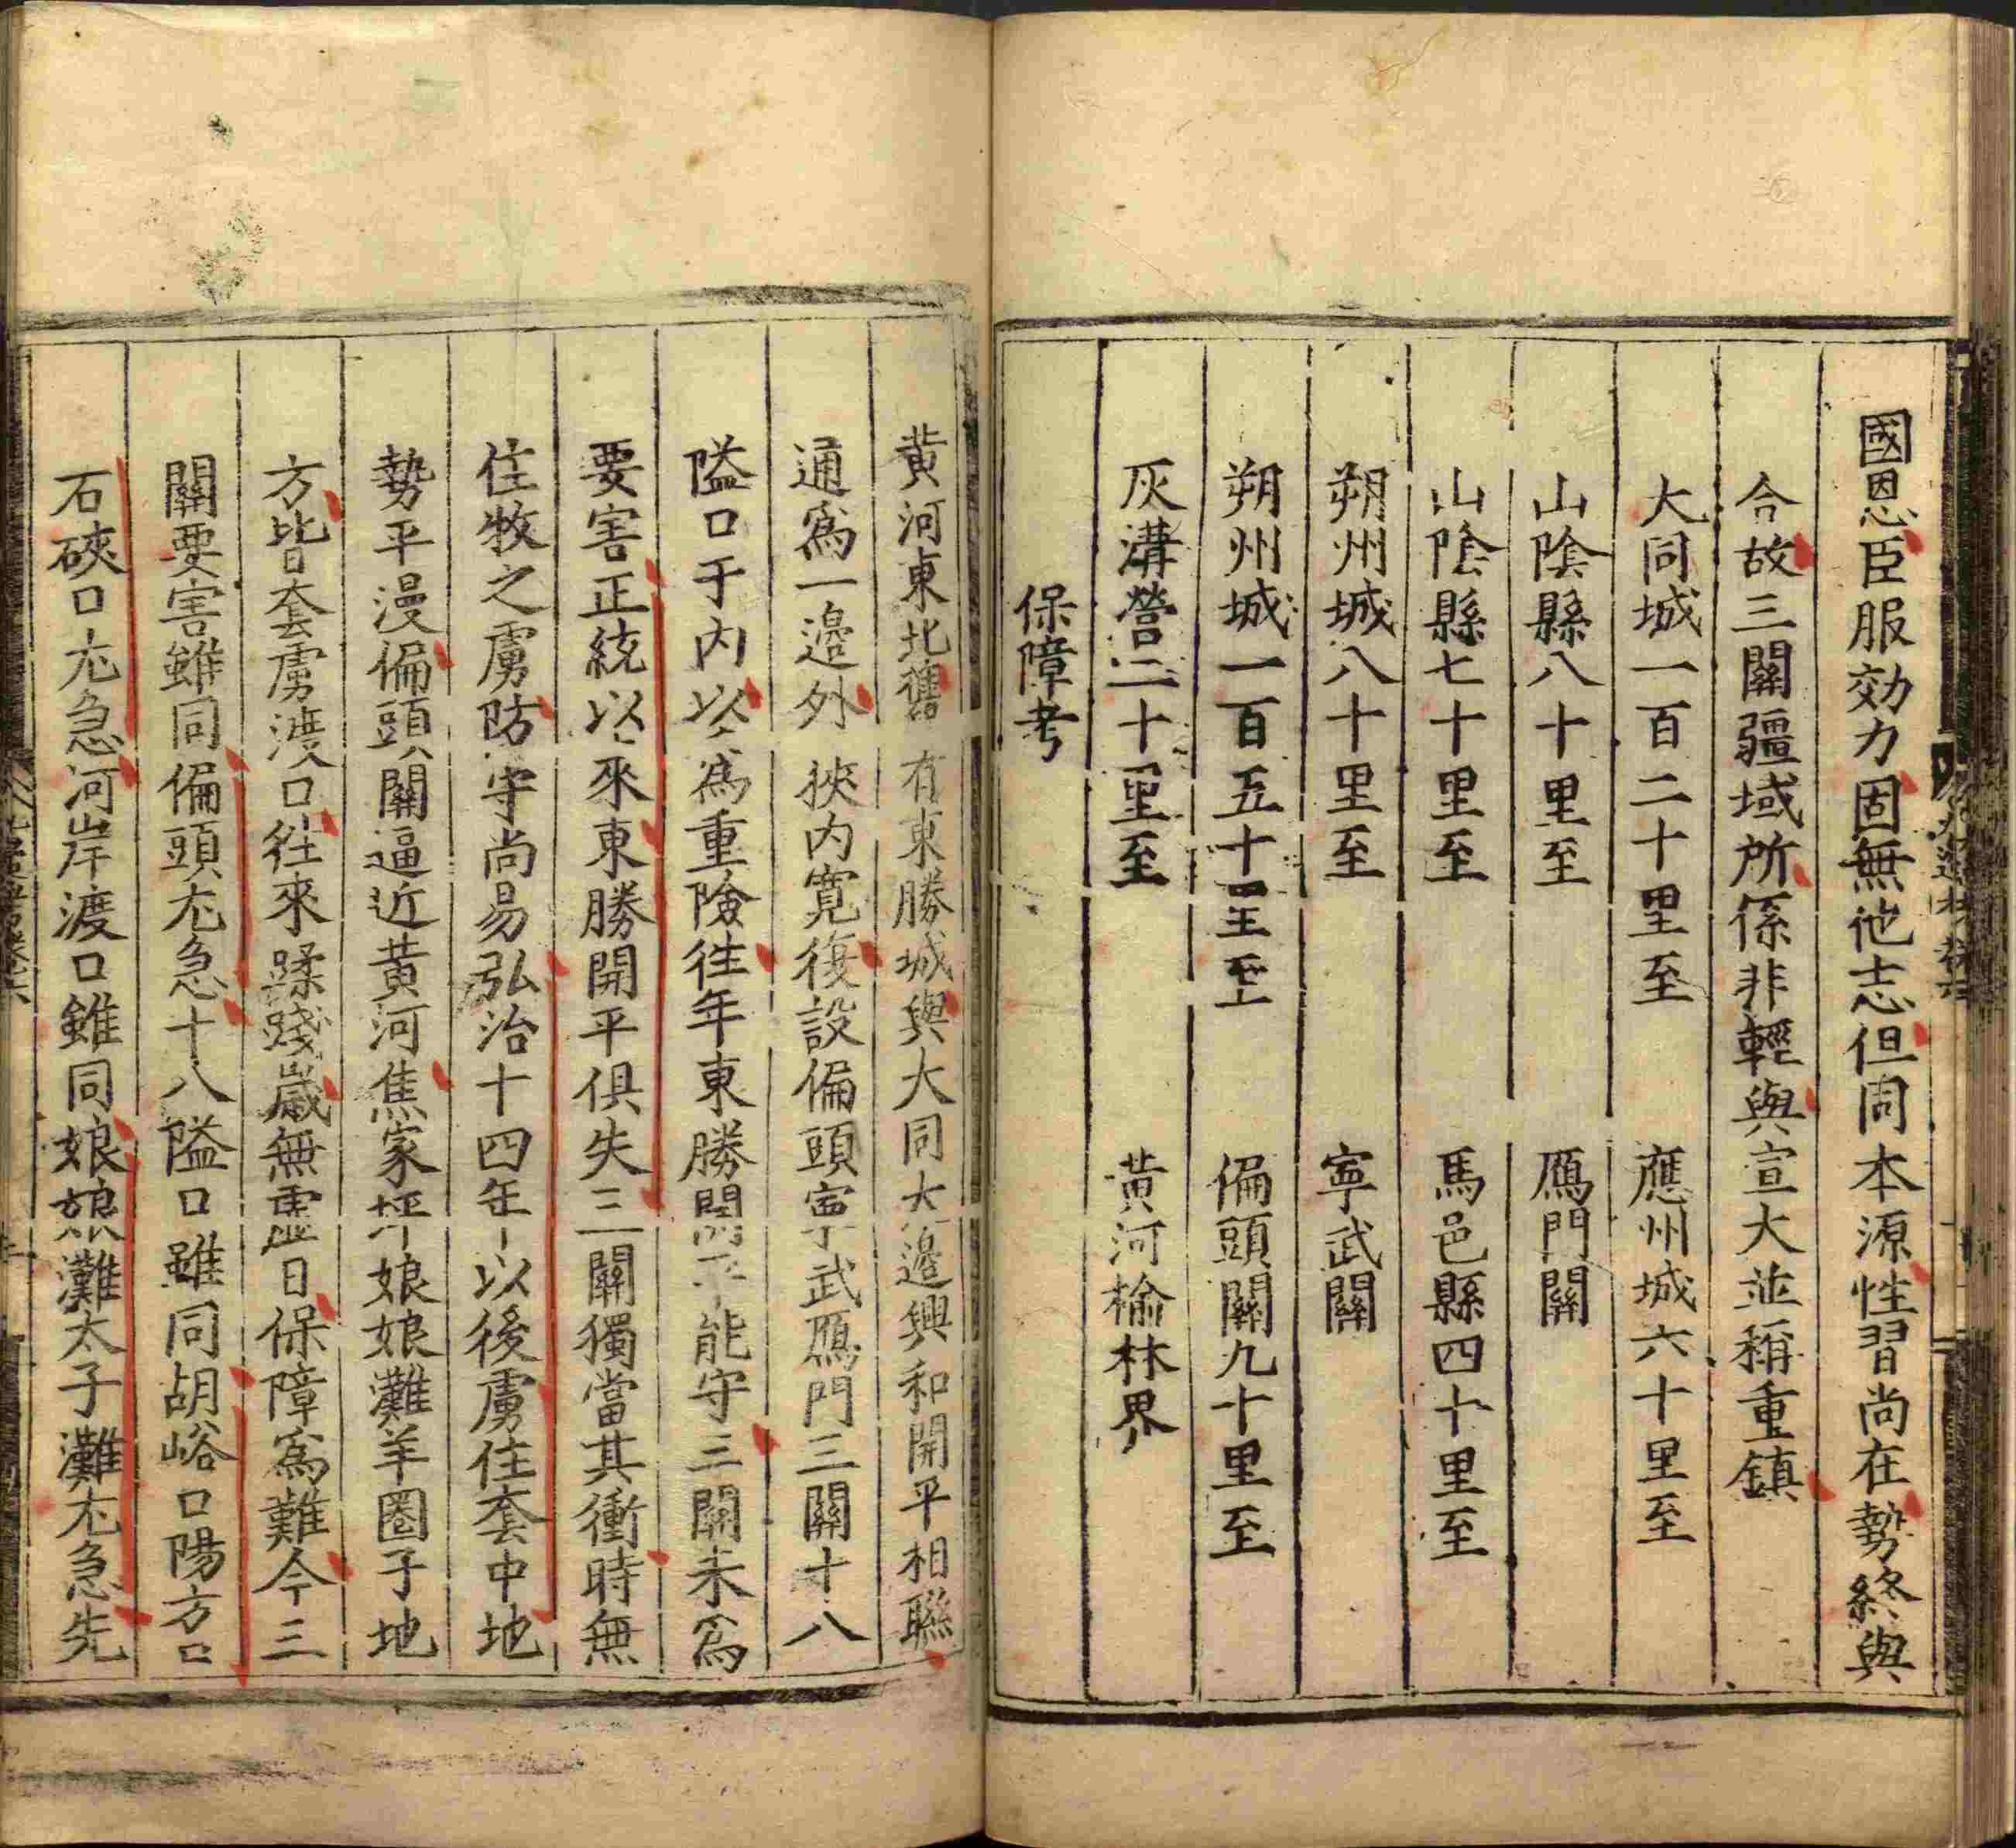 國恩臣服効力固無他志但同本源性習尚在勢終與
合故三關疆域所係非輕與宣大並稱重鎮
大同城一百二十里至 應州城六十里至
山陰縣八十里至 鴈門關
山陰縣七十里至 馬邑縣四十里至
朔州城八十里至 寧武關
朔州城一百五十里至 偏頭關九十里至
灰溝營二十里至 黃河榆林界
保障考
黃河東北舊有東勝城與大同大邉興和開平相聯
通爲一邉外狹內寬復設偏頭寧武鴈門三關十八
隘口于內以爲重險徃年東勝開平能守三關未爲
要害正統以來東勝開平俱失三關獨當其衝時無
住牧之虜防守尚易弘治十四年以後虜住套中地
勢平漫偏頭關逼近黃河焦家坪娘娘灘羊圈子地
方皆套虜渡口徃來蹂踐歲無虛日保障爲難今三
關要害雖同偏頭尤急十八隘口雖同胡峪口陽方口
石硤口尤急河岸渡口雖同娘娘灘太子灘尤急先